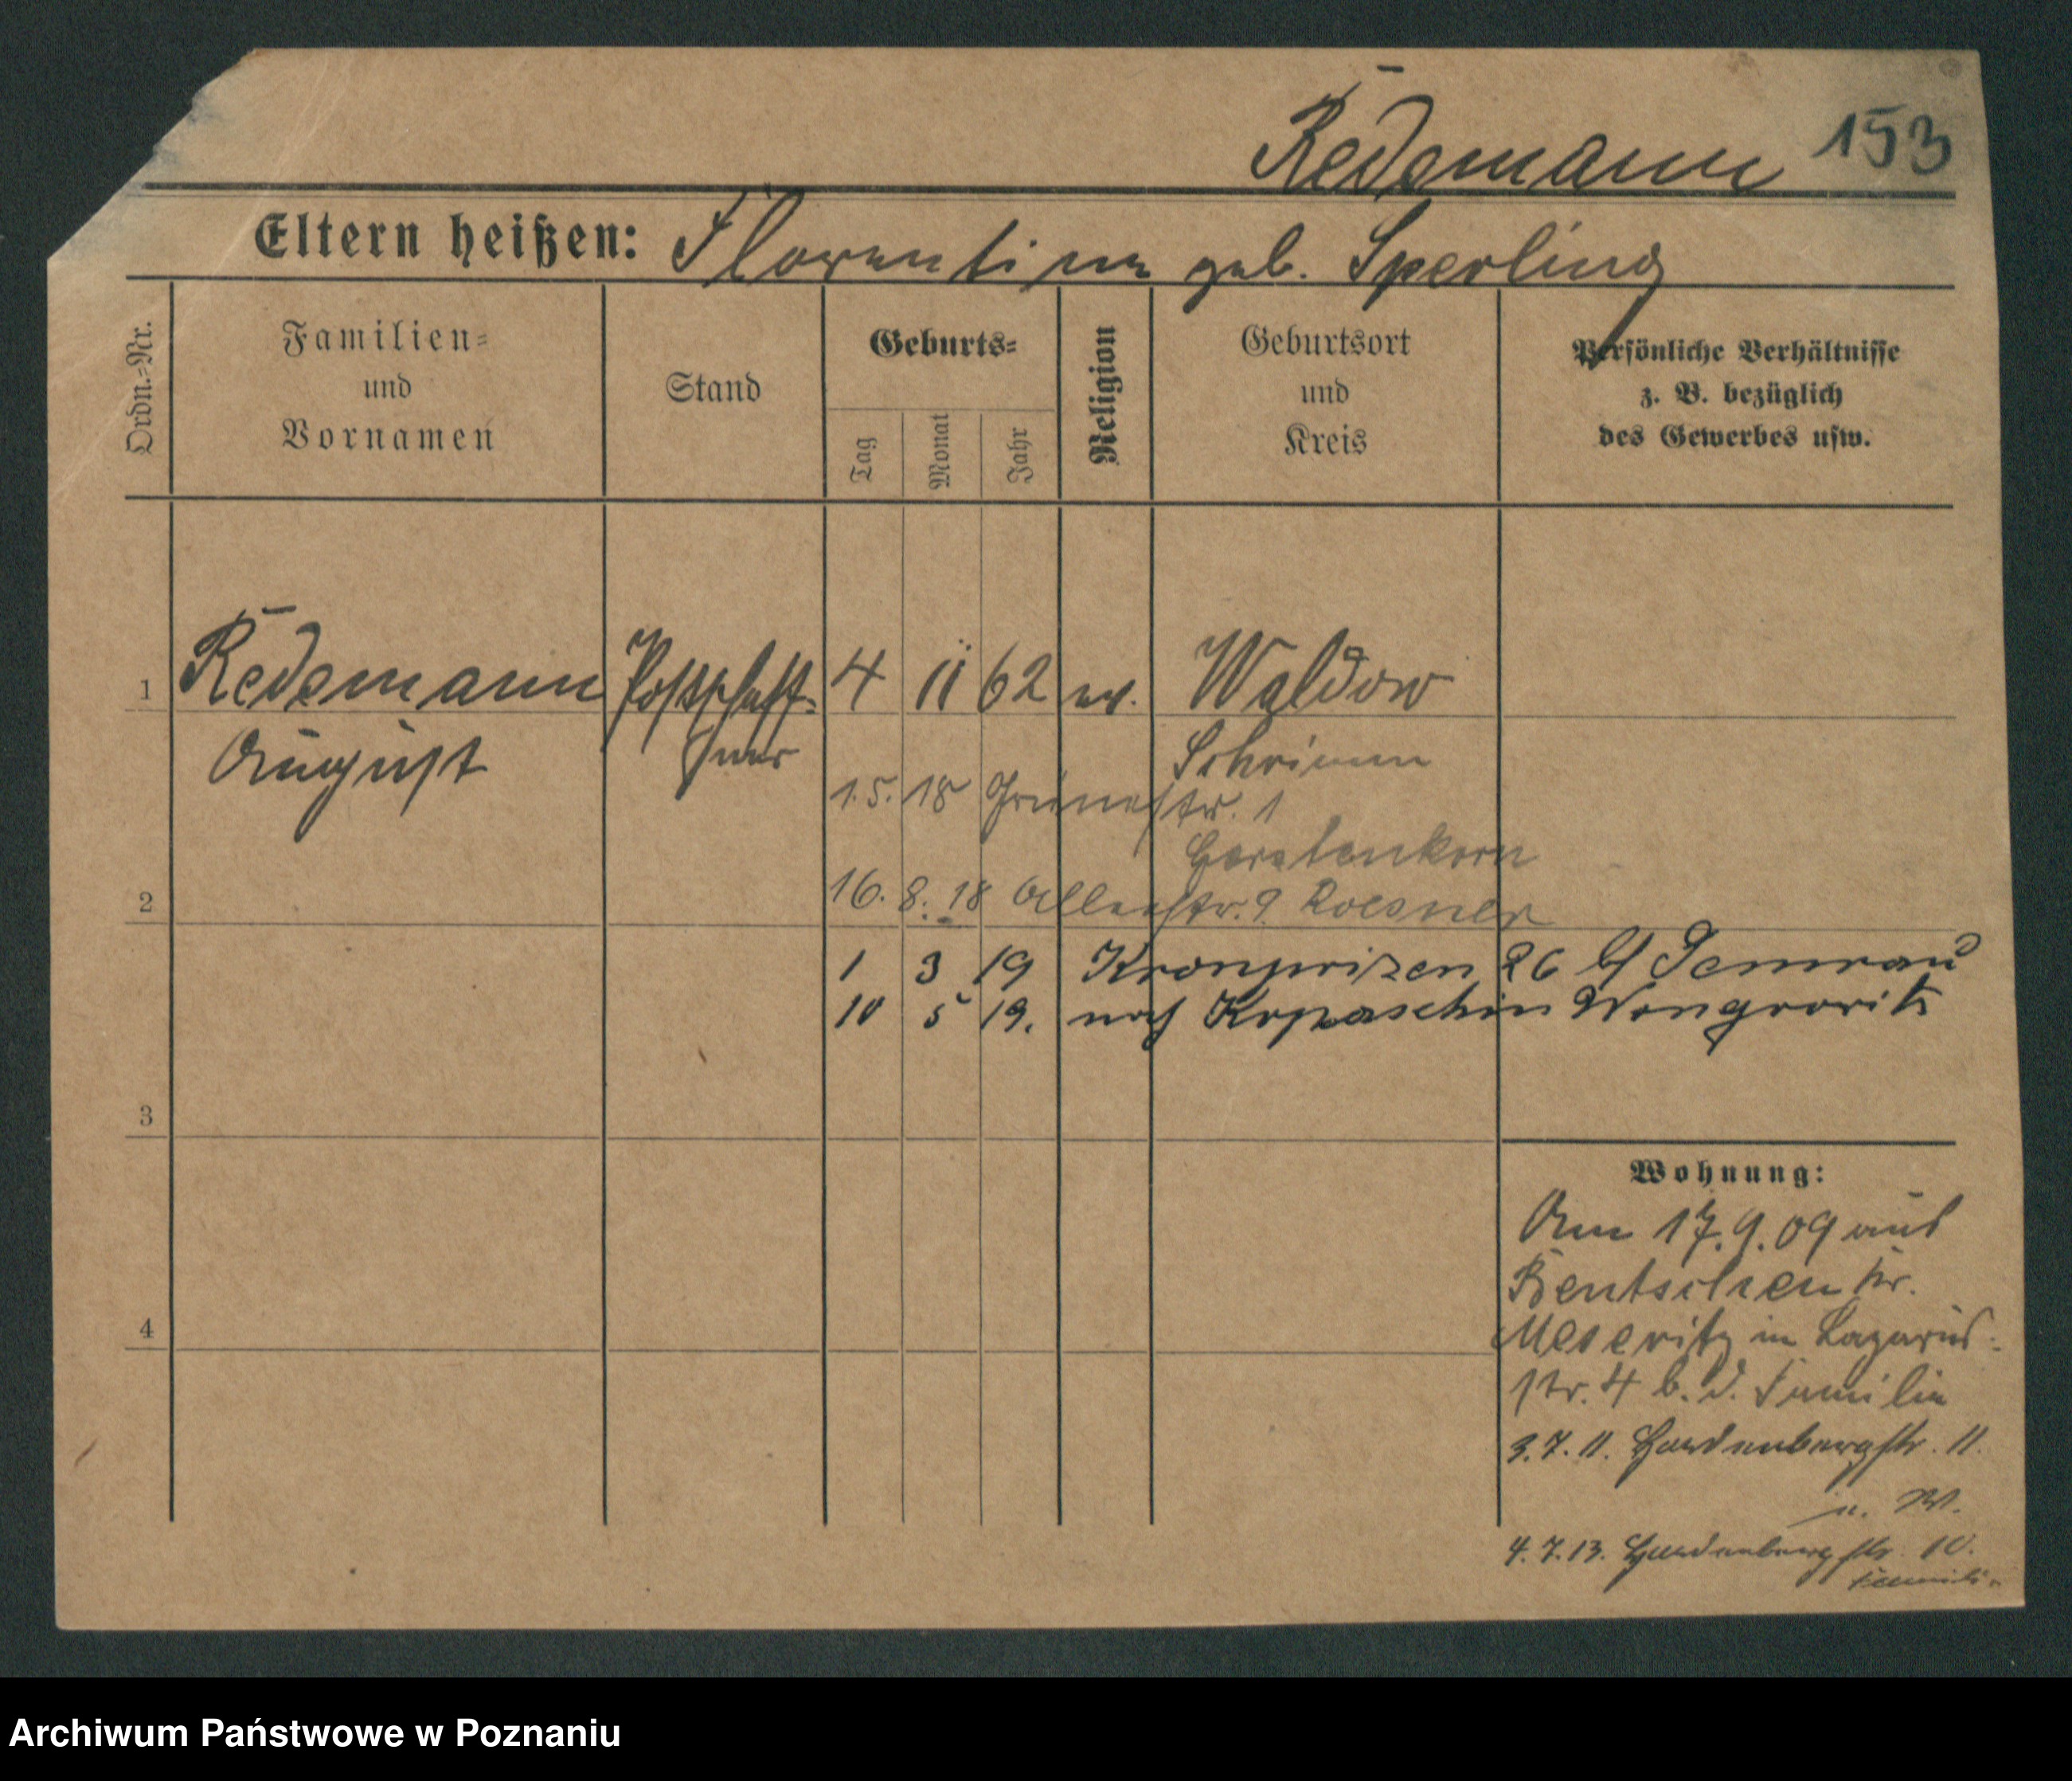 Redemann 153
Eltern heißen: Florentine geb. Sperling
Ordn.-Nr.
Familien-
und
Vornamen
Stand
Geburts-
Tag
Monat
Jahr
Religion
Geburtsort
und
Kreis
Persönliche Verhältnisse
z. B. bezüglich
des Gewerbes usw.
1 Redemann Postschaff- 4 11 62 ev. Waldow
August ner Schrimm
1.5. 18 Grünestr. 1
Gerstenkorn
2 16. 8. 18 Allerstr. 9 Roesner
1 3 19 Kronprizen 26 b/ Semrau
10 5 19. nach Kopaschin Wongrowitz
3
Wohnung:
Am 17.9.09 aus
Bentschen Kr.
4 Meseritz in Lazarus-
str. 4 b. d. Familie
3.7.11. Hardenbergstr. 11.
u. W.
4.7.13. Hardenbergstr. 10.
Familie
Archiwum Państwowe w Poznaniu